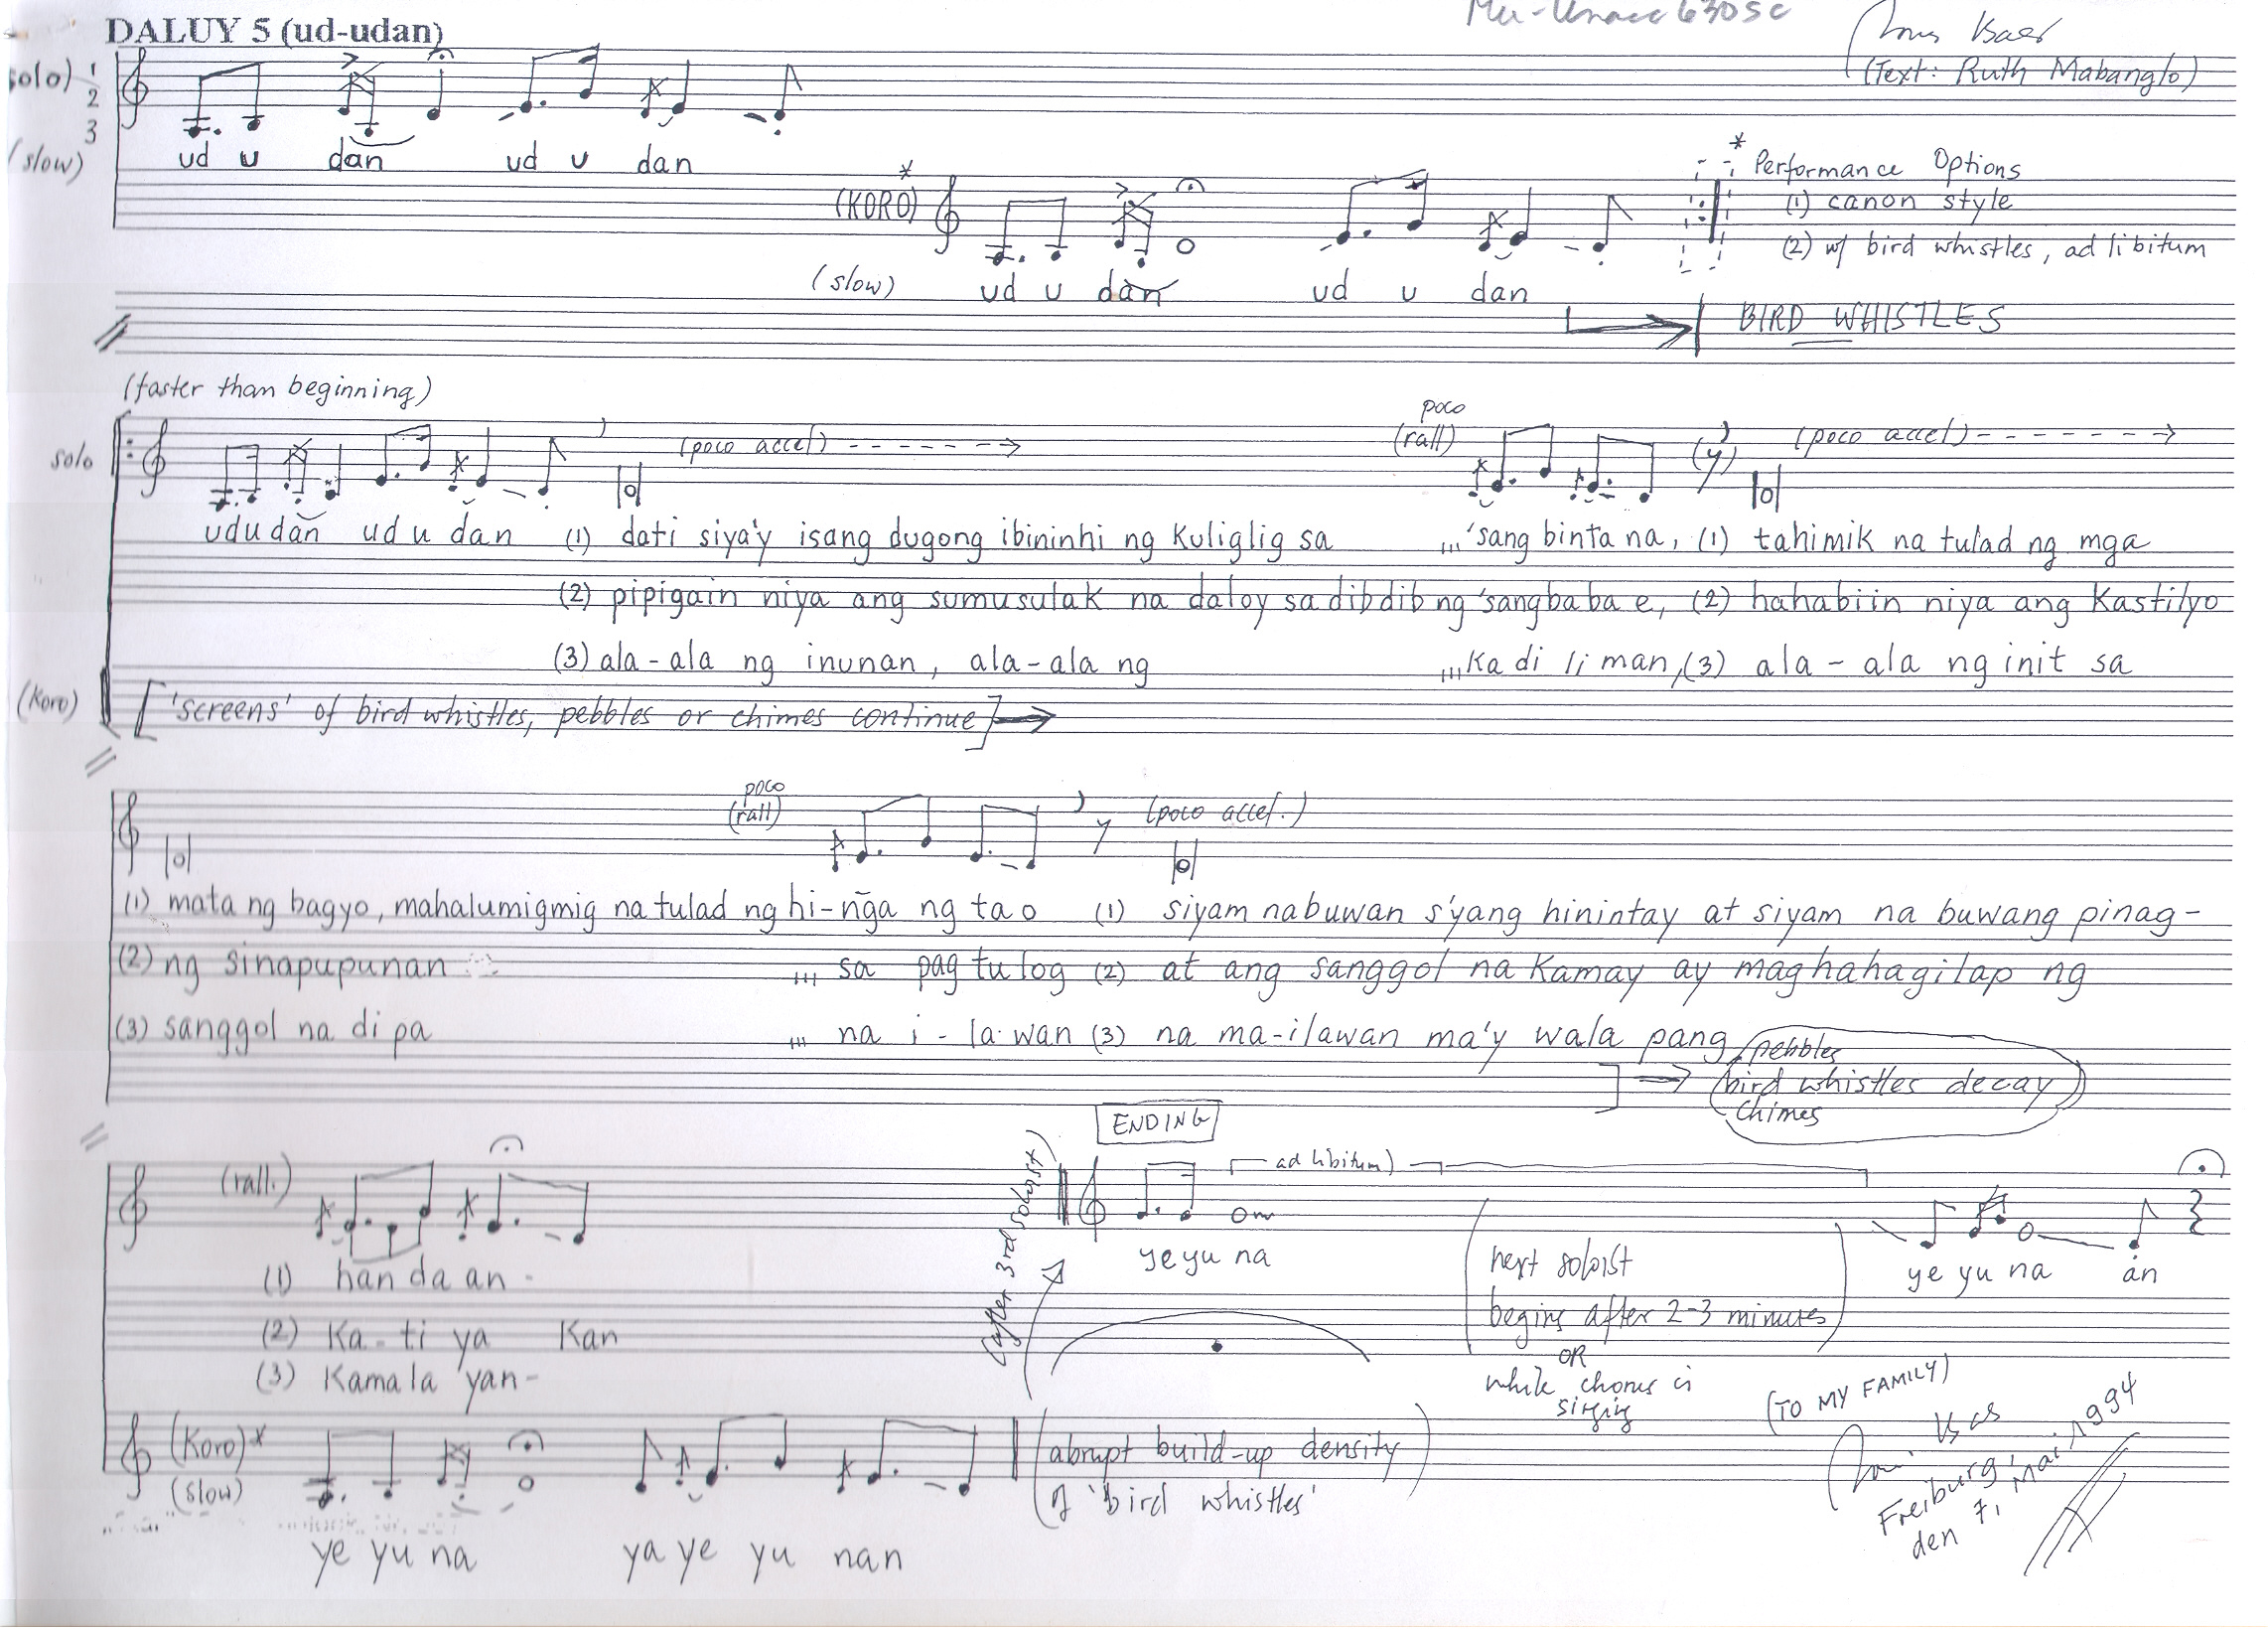 DALUY 5 (ud-udan)
(Text: Ruth Mabanglo)
solo) 1
2
3
(slow)
ud u dan ud u dan
(KORO) *
(slow)
ud u dan ud u dan
* Performance Options
(1) canon style
(2) w/ bird whistles, ad libitum
BIRD WHISTLES
(faster than beginning)
solo
(poco accel)
poco
(rall)
(poco accel)
ud u dan ud u dan (1) dati siya'y isang dugong ibininhi ng kuliglig sa ,,, 'sang binta na, (1) tahimik na tulad ng mga
(2) pipigain niya ang sumusulak na daloy sa dibdib ng 'sang baba e, (2) hahabiin niya ang kastilyo
(3) ala-ala ng inunan, ala-ala ng ,,, ka di li man, (3) ala-ala ng init sa
(Koro)
['screens' of bird whistles, pebbles or chimes continue]
poco
(rall)
(poco accel.)
(1) mata ng bagyo, mahalumigmig na tulad ng hi-ñga ng tao (1) siyam na buwan s'yang hinintay at siyam na buwang pinag-
(2) ng sinapupunan ,,, sa pag tulog (2) at ang sanggol na kamay ay maghahagilap ng
(3) sanggol na di pa ,,, na i - la-wan (3) na ma-ilawan ma'y wala pang
pebbles
bird whistles decay
chimes
(rall.)
(1) han da an -
(2) Ka - ti ya Kan
(3) Kamala yan -
(after 3rd soloist)
ENDING
ad libitum)
ye yu na
(next soloist
begins after 2-3 minutes)
OR
while chorus is
singing
ye yu na an
(Koro)*
(slow)
ye yu na ya ye yu nan
(abrupt build-up density
of 'bird whistles')
(TO MY FAMILY)
Freiburg,
den 7, Mai, 1994